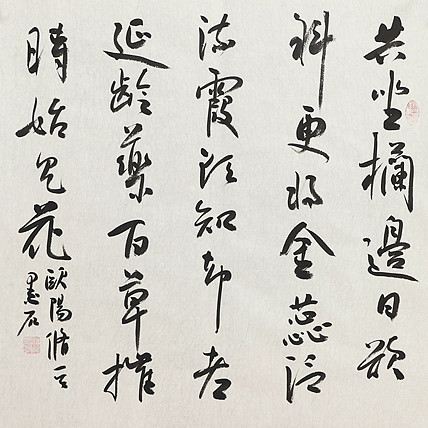 共坐欄邊日欲
斜更将金蕊泛
流霞须知却老
延齡藥百草摧
時始見花
歐陽脩
墨石